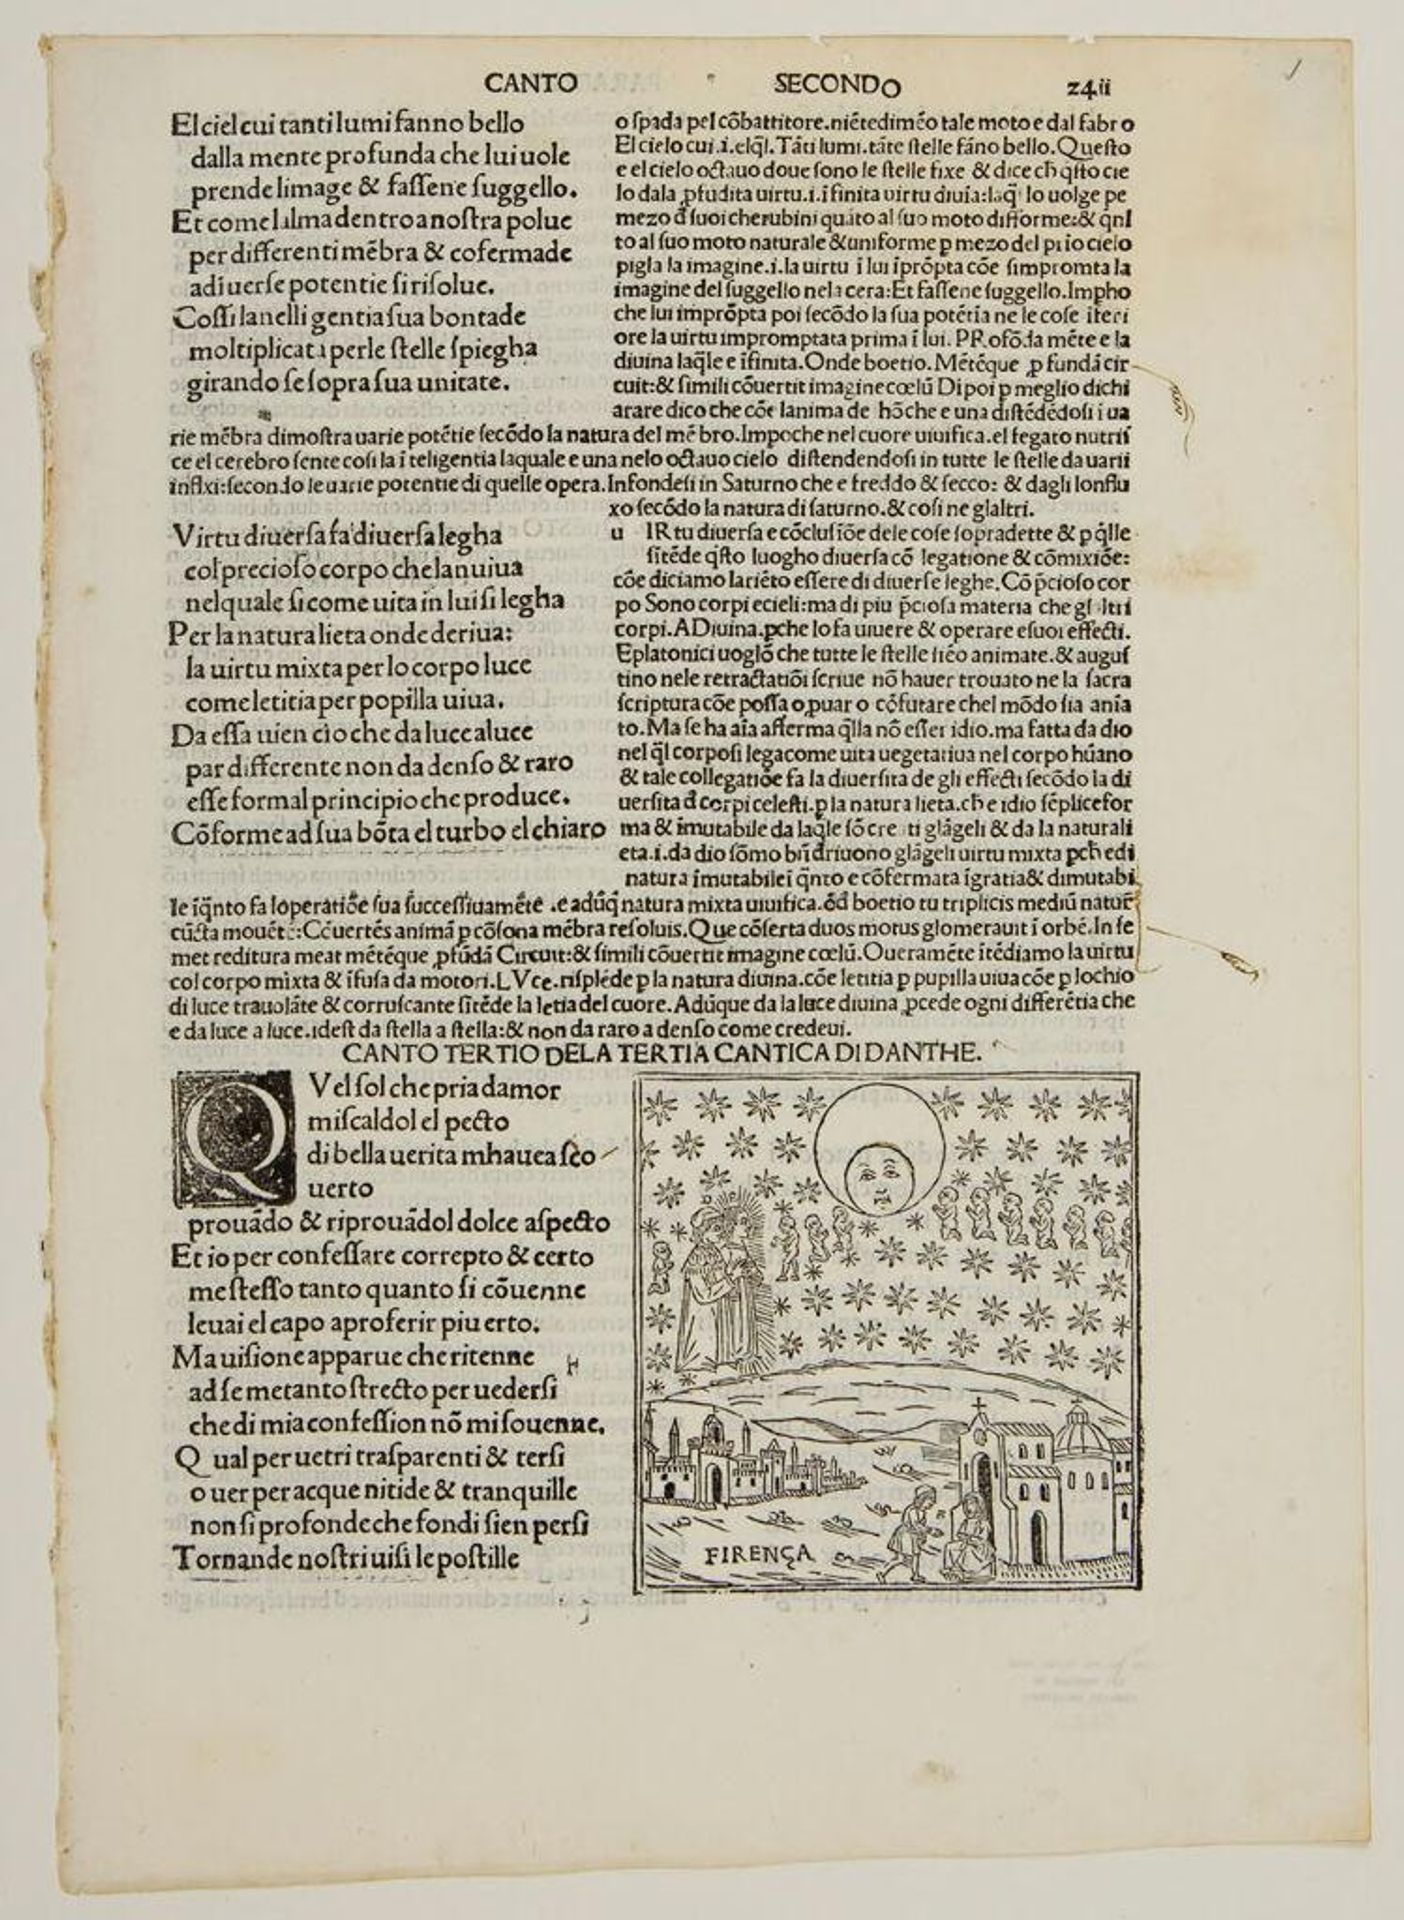 CANTO SECONDO 24ii
El ciel cui tanti lumi fanno bello
dalla mente profunda che lui uole
prende limage & faſſene ſuggello.
Et come lalma dentro a noſtra polue
per differenti mẽbra & cofermade
adiuerſe potentie ſi riſolue.
Coſſi lanelligentia ſua bontade
moltiplicata perle ſtelle ſpiegha
girando ſe ſopra ſua unitate.
o ſpada pel cõbattitore.niẽtedimẽo tale moto e dal fabro
El cielo cui.i.elq̃l.Tãti lumi.tãte ſtelle fãno bello.Queſto
e el cielo octauo doue ſono le ſtelle fixe & dice ch q̃ſto cie
lo dala ꝓfũdita uirtu.i.ĩfinita uirtu diuĩa:laq̃l lo uolge pe
mezo đ ſuoi cherubini quãto al ſuo moto difforme:& q̃nl
to al ſuo moto naturale &uniforme p mezo del p io cielo
pigla la imagine.i.la uirtu ĩ lui ĩprõpta cõe ſimpromta la
imagine del ſuggello nela cera:Et faſſene ſuggello.Impho
che lui imprõpta poi ſecõdo la ſua potẽtia ne le coſe ĩteri
ore la uirtu impromptata prima ĩ lui. PRofõ.la mẽte e la
diuina laq̃le e ĩfinita.Onde boetio.Mẽtẽque ꝓfundã cir
cuit:& ſimili cõuertit imagine cœlũ Di poi p meglio dichi
arare dico che cõe lanima de hõche e una diſtẽdẽdoſi ĩ ua
rie mẽbra dimoſtra uarie potẽtie ſecõdo la natura del mẽbro.Impoche nel cuore uiuifica.el fegato nutriſ
ce el cerebro ſente coſi la ĩteligentia laquale e una nelo octauo cielo diſtendendoſi in tutte le ſtelle da uarii
inflxi:ſecondo le uarie potentie di quelle opera.Infondeſi in Saturno che e freddo & ſecco: & dagli lonflu
xo ſecõdo la natura di ſaturno.& coſi ne glaltri.
Virtu diuerſa fa diuerſa legha
col precioſo corpo chelanuiua
nelquale ſi come uita in lui ſi legha
Per la natura lieta onde deriua:
la uirtu mixta per lo corpo luce
come letitia per popilla uiua.
Da eſſa uien cio che da luce a luce
par differente non da denſo & raro
eſſe formal principio che produce.
Cõforme ad ſua bõta el turbo el chiaro
u IRtu diuerſa e cõcluſiõe dele coſe ſopradette & p q̃lle
ſĩtẽde q̃ſto luogho diuerſa cõ legatione & cõmixiõe:
cõe diciamo lariẽto eſſere di diuerſe leghe.Cõ p̃cioſo cor
po Sono corpi ecieli:ma di piu p̃cioſa materia che gl ltri
corpi.ADiuina.ꝑche lo fa uiuere & operare eſuoi effecti.
Eplatonici uoglõ che tutte le ſtelle ſiẽo animate.& auguſ
tino nele retractatiõi ſcriue nõ hauer trouato ne la ſacra
ſcriptura cõe poſſa o ꝓuar o cõfutare chel mõdo ſia ania
to.Ma ſe ha aĩa afferma q̃lla nõ eſſer idio.ma fatta da dio
nel q̃l corpoſi lega come uita uegetatiua nel corpo hũano
& tale collegatiõe fa la diuerſita de gli effecti ſecõdo la di
uerſita đ corpi celeſti.p la natura lieta.ch e idio ſẽplice for
ma & ĩmutabile da laq̃le ſõ cre ti glãgeli & da la naturali
eta.i.da dio ſõmo bñ đriuono glãgeli uirtu mixta ꝑch edi
natura ĩmutabile ĩ q̃nto e cõfermata ĩ gratia& dimutabi
le ĩ q̃nto fa loperatiõe ſua ſucceſſiuamẽte .e adũq natura mixta uiuifica.õd boetio tu triplicis mediũ naturẽ
cũcta mouẽt :Cõuertẽs animã p cõſona mẽbra reſoluis.Que cõſerta duos motus glomerauit ĩ orbẽ.In ſe
met reditura meat mẽtẽque ꝓfũdã Circuit:& ſimili cõuertit imagine cœlũ.Oueramẽte ĩtẽdiamo la uirtu
col corpo mixta & ĩfuſa da motori.LVce.riſplẽde p la natura diuina.cõe letitia p pupilla uiua cõe p lochio
di luce trauolãte & corruſcante ſĩtẽde la letia del cuore.Adũque da la luce diuina ꝓcede ogni differẽtia che
e da luce a luce.ideſt da ſtella a ſtella:& non da raro a denſo come credeui.
CANTO TERTIO DELA TERTIA CANTICA DI DANTHE.
QVel ſol che pria damor
mi ſcaldol el pecto
di bella uerita mhauea ſco
uerto
prouãdo & riprouãdol dolce aſpecto
Et io per confeſſare correpto & certo
me ſteſſo tanto quanto ſi cõuenne
leuai el capo aproferir piu erto.
Ma uiſione apparue che ritenne
ad ſe me tanto ſtrecto per uederſi
che di mia confeſſion nõ mi ſouenne.
Qual per uetri traſparenti & terſi
o uer per acque nitide & tranquille
non ſi profonde che fondi ſien perſi
Tornan de noſtri uiſi le poſtille
FIRENÇA